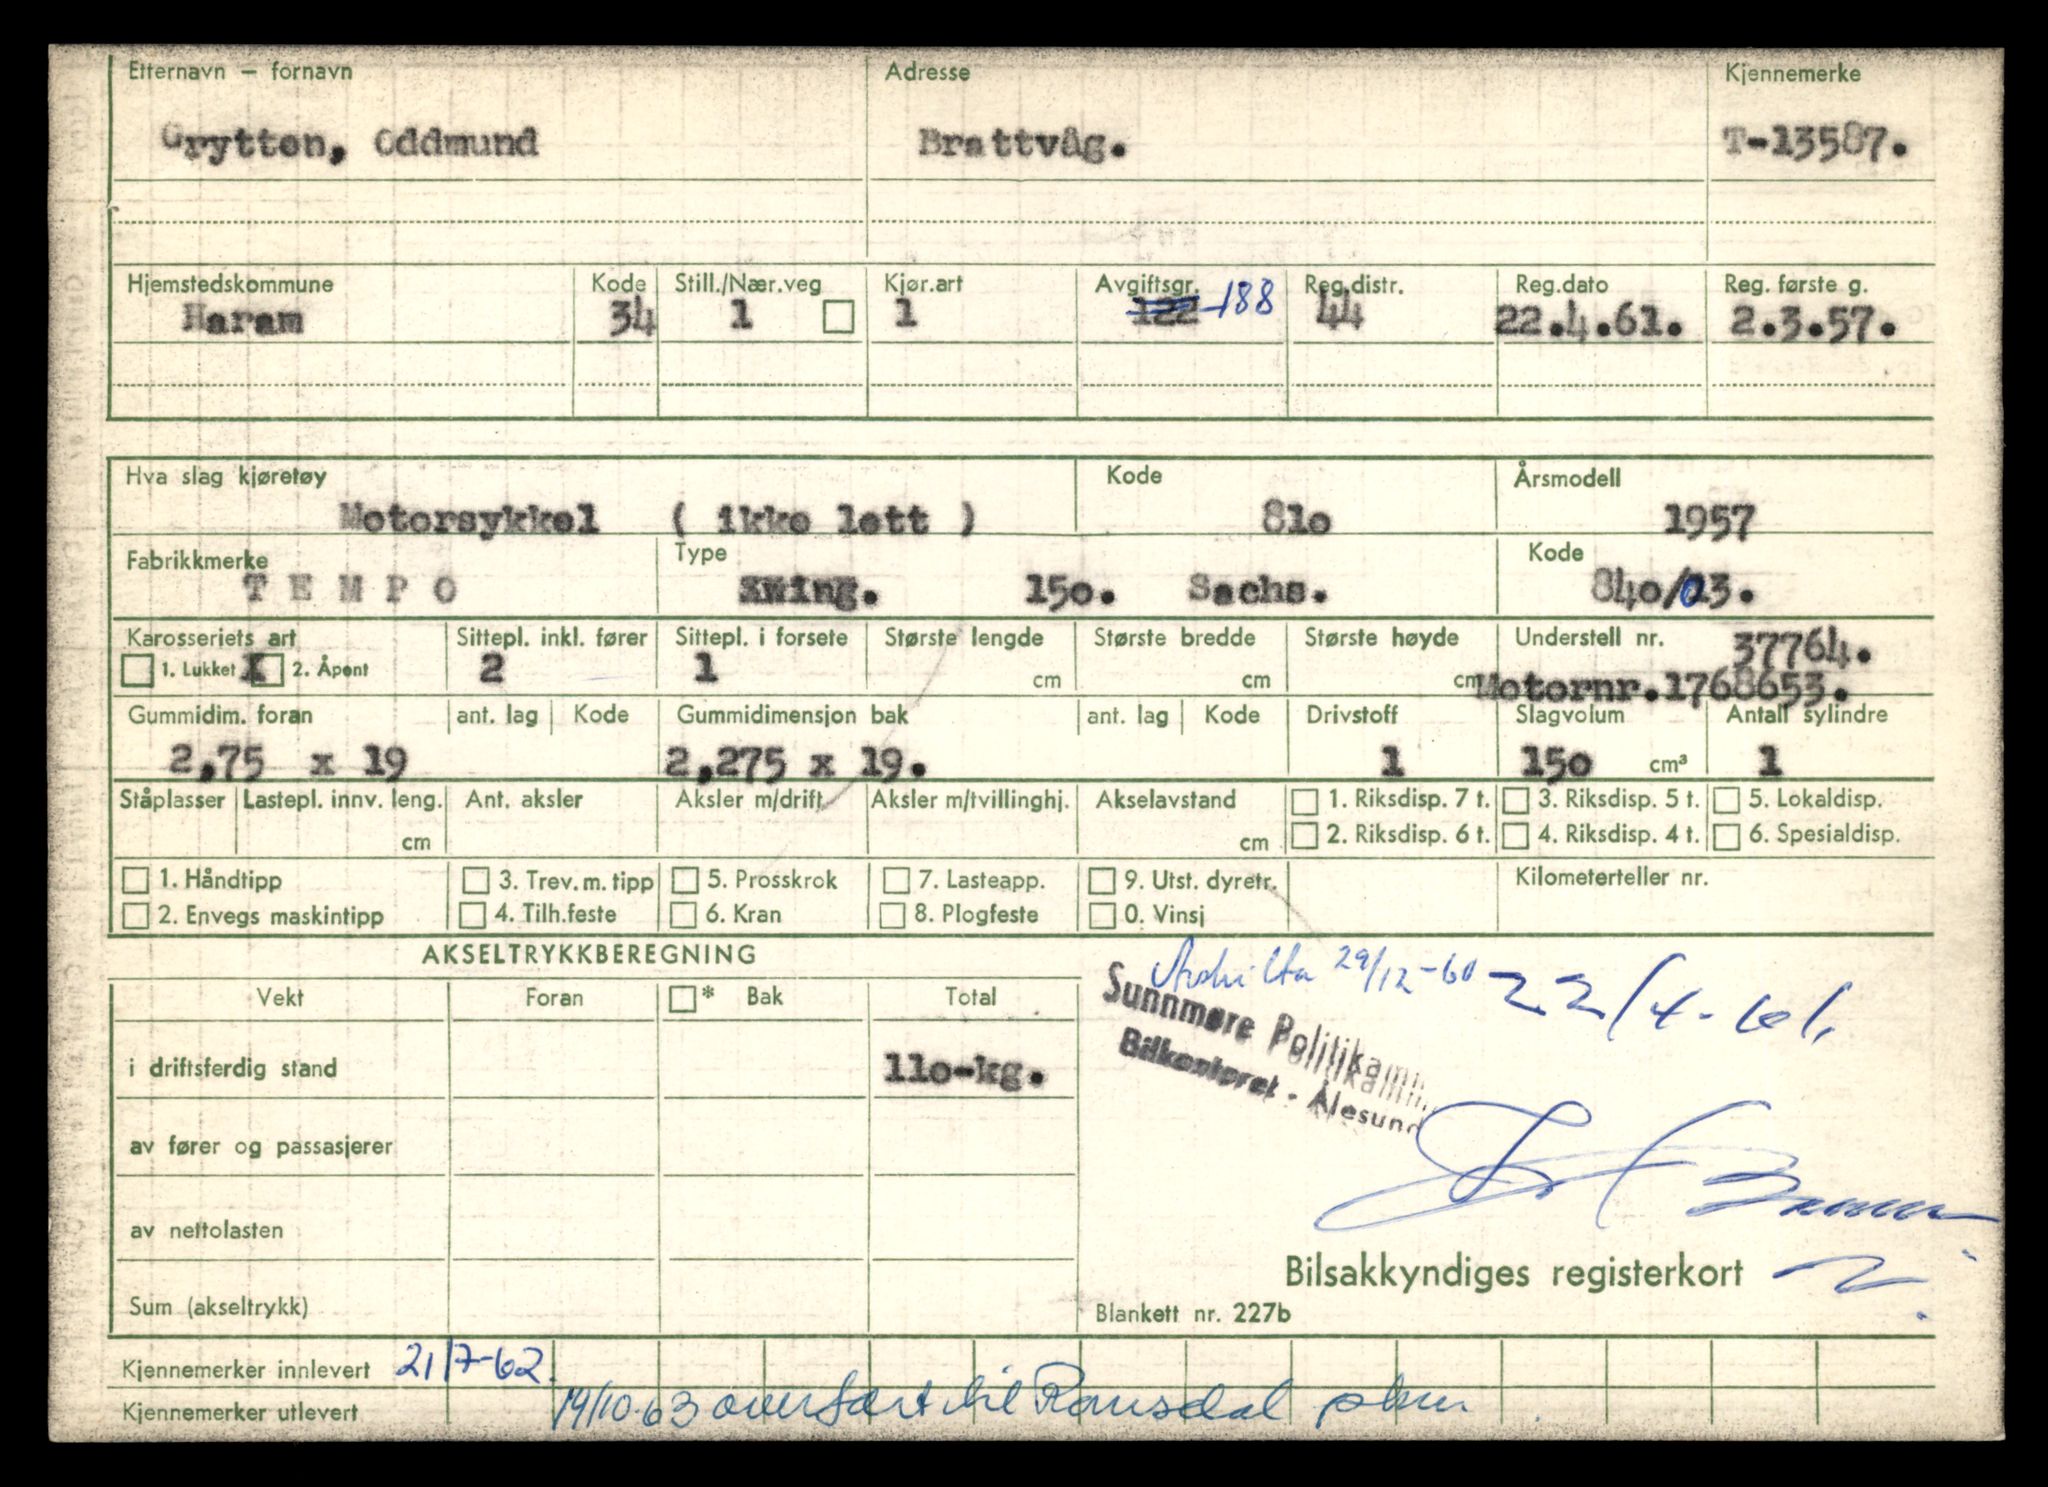 Etternavn – fornavn Adresse Kjennemerke
Grytten, Oddmund Brattvåg. T-13587.
Hjemstedskommune Kode Still./Nær.veg Kjør.art Avgiftsgr. Reg.distr. Reg.dato Reg. første g.
Haram 34 1 1 122 188 44 22.4.61. 2.3.57.
Hva slag kjøretøy Kode Årsmodell
Motorsykkel ( ikke lett ) 81o 1957
Fabrikkmerke Type Kode
T E M P O Swing. 15o. Sachs. 84o/013.
Karosseriets art Sittepl. inkl. fører Sittepl. i forsete Største lengde Største bredde Største høyde Understell nr. 37764.
1. Lukket X 2. Åpent 2 1 cm cm cm Motornr.1768653.
Gummidim. foran ant. lag Kode Gummidimensjon bak ant. lag Kode Drivstoff Slagvolum Antall sylindre
2,75 x 19 2,275 x 19. 1 15o cm³ 1
Ståplasser Lastepl. innv. leng. Ant. aksler Aksler m/drift Aksler m/tvillinghj. Akselavstand 1. Riksdisp. 7 t. 3. Riksdisp. 5 t. 5. Lokaldisp.
cm cm 2. Riksdisp. 6 t. 4. Riksdisp. 4 t. 6. Spesialdisp.
1. Håndtipp 3. Trev. m. tipp 5. Prosskrok 7. Lasteapp. 9. Utst. dyretr. Kilometerteller nr.
2. Envegs maskintipp 4. Tilh.feste 6. Kran 8. Plogfeste 0. Vinsj
AKSELTRYKKBEREGNING
29/12-60 22/4-61.
Vekt Foran * Bak Total
Sunnmøre Politikam
Bilkontoret - Ålesund
i driftsferdig stand 11o-kg.
av fører og passasjerer
av nettolasten
Bilsakkyndiges registerkort
Sum (akseltrykk)
Blankett nr. 227b
Kjennemerker innlevert 21/7-62.
Kjennemerker utlevert 19/10.63 overført til Romsdal pkm